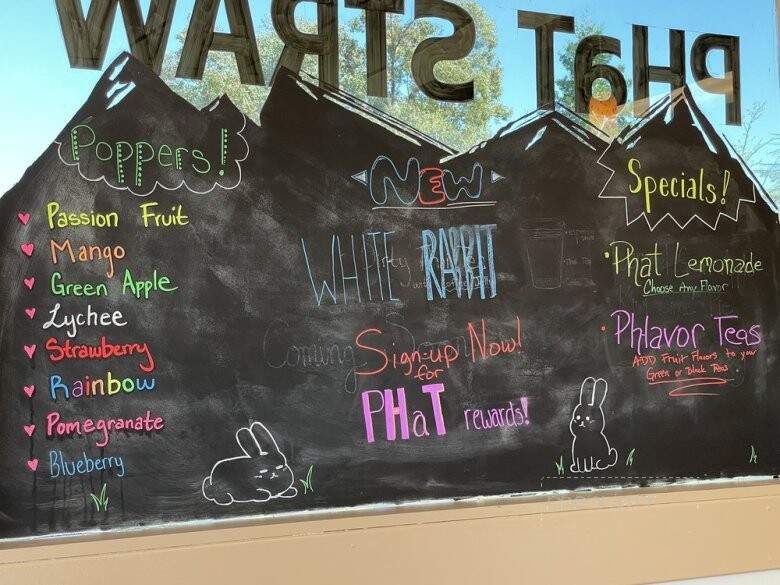 PHaT STRAW
Poppers!
Passion Fruit
Mango
Green Apple
Lychee
Strawberry
Rainbow
Pomegranate
Blueberry
NEW
WHITE RABBIT
Coming
Sign-up Now!
for
PHaT rewards!
Specials!
Phat Lemonade
Choose Any Flavor
Phlavor Teas
ADD Fruit Flavors to your
Green or Black Teas